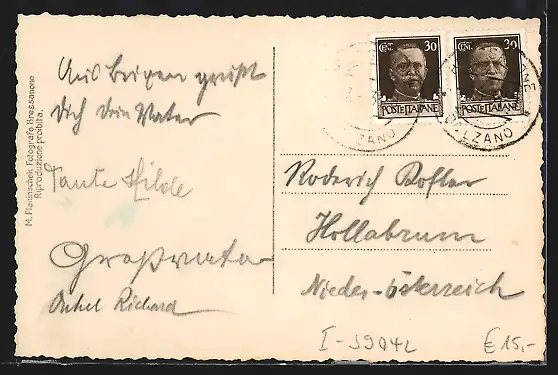 Aus Brixen grüßt
Dich Dein Vater
Tante Hilde
Großvater
Onkel Richard
M. Planinschek, Fotografo Bressanone
Riproduzione proibita.
CENT. 30
POSTE ITALIANE
CENT. 30
POSTE ITALIANE
BOLZANO
Roderich
Hollabrunn
Nieder-Österreich
I-3904L
€ 15,-